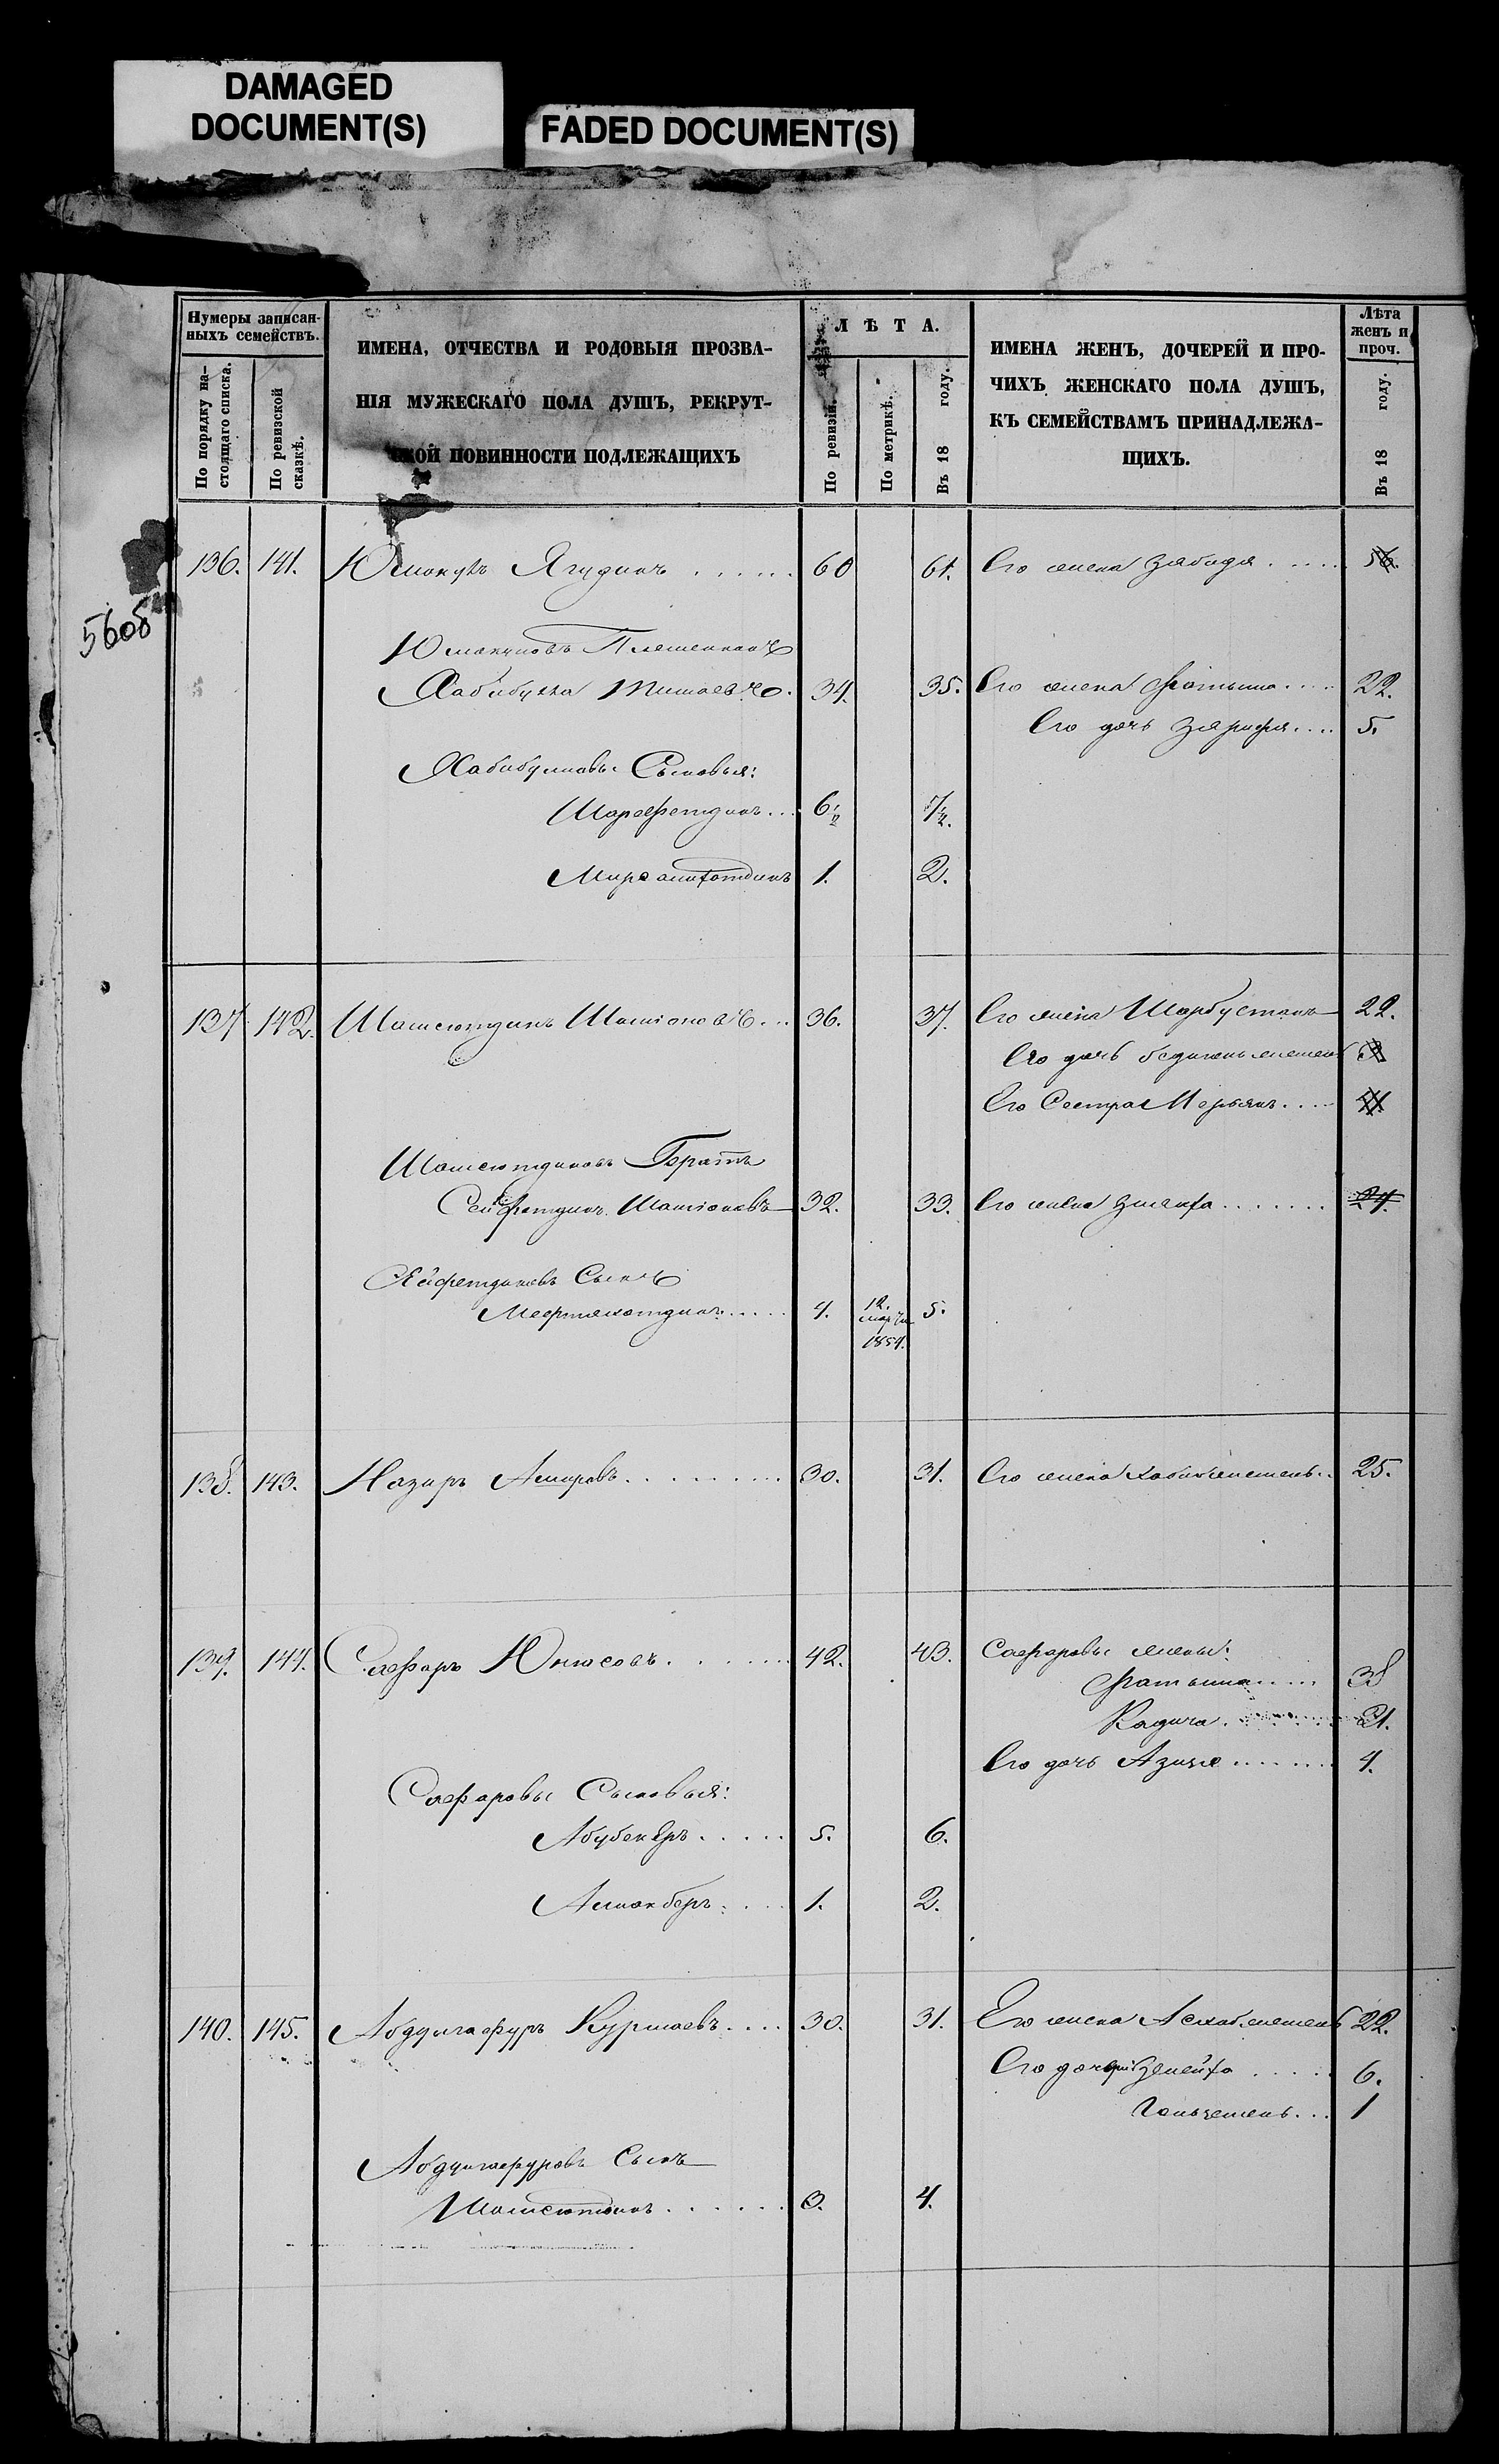 DAMAGED
DOCUMENT(S)
FADED DOCUMENT(S)
Нумеры записан-
ныхъ семействъ.
По порядку на-
стоящаго списка.
По ревизской
сказкѣ.
ИМЕНА, ОТЧЕСТВА И РОДОВЫЯ ПРОЗВА-
НІЯ МУЖЕСКАГО ПОЛА ДУШЪ, РЕКРУТ-
СКОЙ ПОВИННОСТИ ПОДЛЕЖАЩИХЪ
ЛѢТА.
По ревизіи.
По метрикѣ.
Въ 18 году.
ИМЕНА ЖЕНЪ, ДОЧЕРЕЙ И ПРО-
ЧИХЪ ЖЕНСКАГО ПОЛА ДУШЪ,
КЪ СЕМЕЙСТВАМЪ ПРИНАДЛЕЖА-
ЩИХЪ.
Лѣта
женъ и
проч.
Въ 18 году.
56об
136. 141. Юмакулъ Ягудинъ 60 61. Его жена Забида 56.
Юмакуловъ Племянникъ
Хабибулла 34. 35. Его жена Фатыма 22.
Его дочь Зярифя 5.
Хабибулловы Сыновья:
Шарафетдинъ 6 1/2 7 1/2.
1. 2.
137. 142. Шамсютдинъ 36. 37. Его жена Шарбустанъ 22.
Его дочь
Его Сестра Мерьямъ
Шамсютдиновъ Братъ
Сейфетдинъ 32. 33. Его жена 24.
Сейфетдиновъ Сынъ
4. 12. марта 1854. 5.
138. 143. Назиръ Амировъ 30. 31. Его жена 25.
139. 144. Сафаръ Юнюсовъ 42. 43. Сафаровы жены:
Фатыма 38
Кадича 21.
Его дочь Азизя 4.
Сафаровы Сыновья:
Абубекеръ 5. 6.
Алиакберъ 1. 2.
140. 145. Абдулгафуръ Курмаевъ 30. 31. Его жена 22.
Его дочери Зелейха 6.
1
Абдулгафуровъ Сынъ
Шамсютдинъ 3. 4.